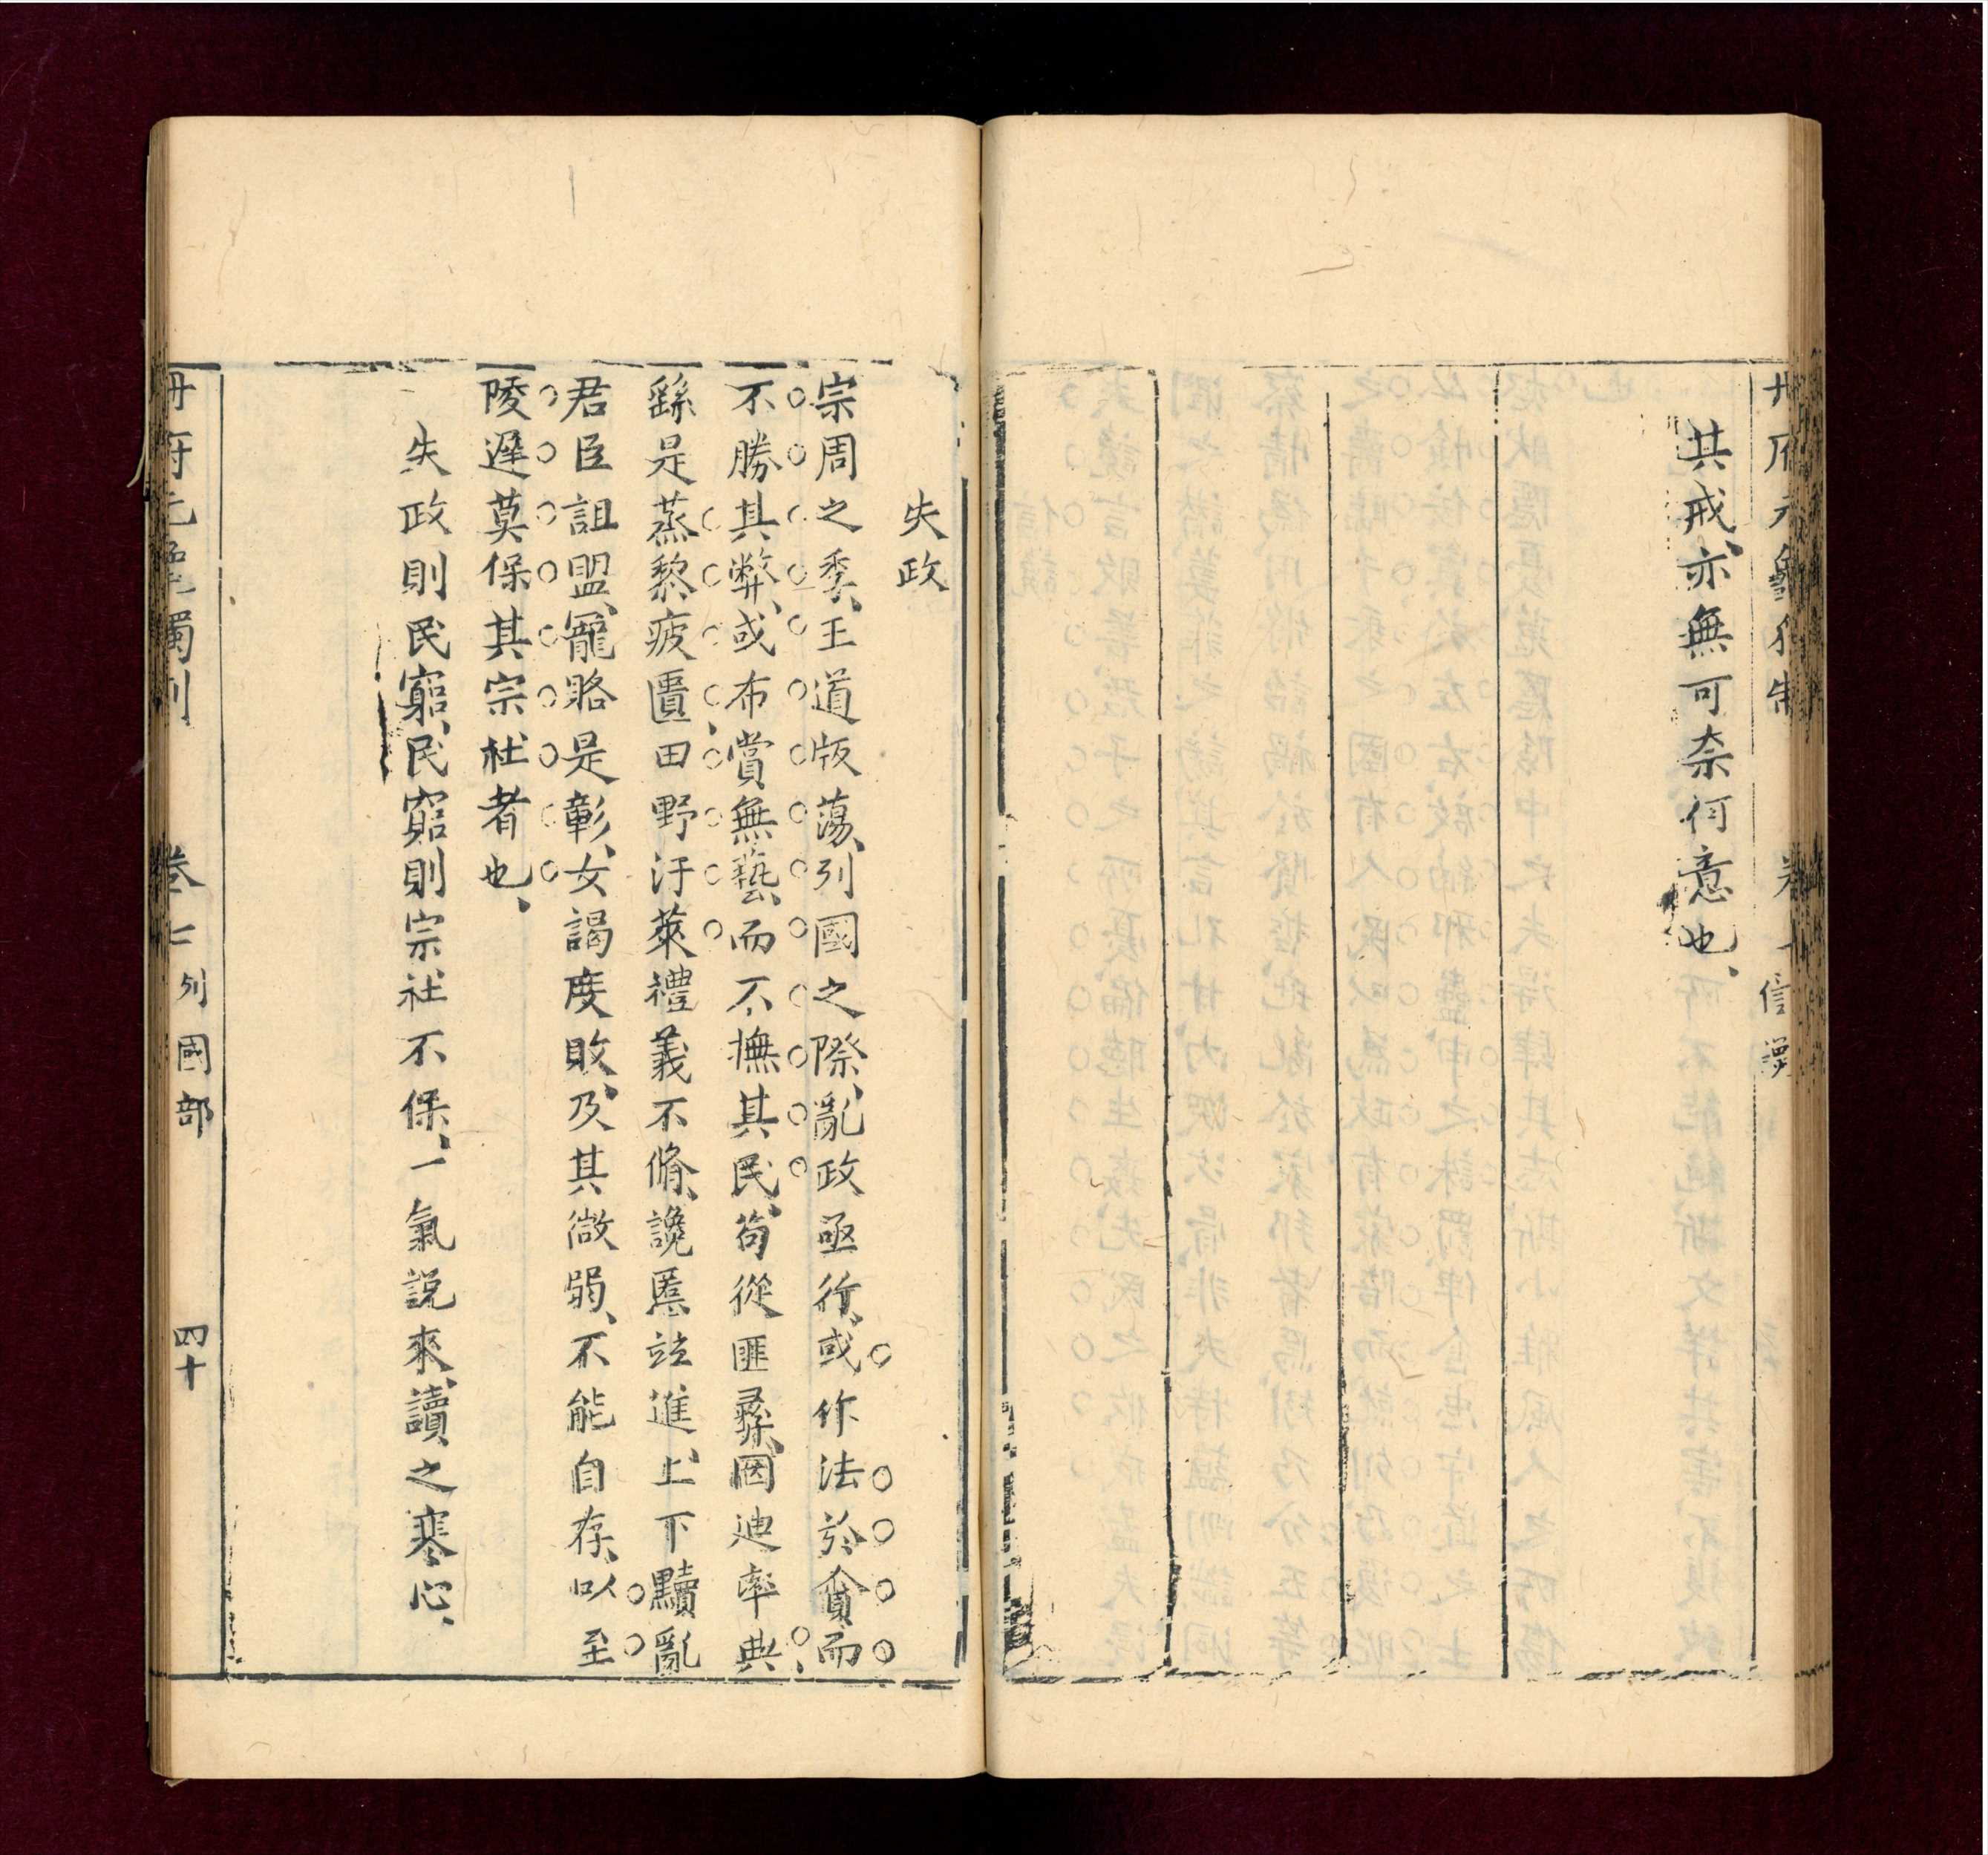 其戒、亦無可奈何意也、
信讒
失政
宗周之季、王道版蕩、列國之際、亂政亟行、或作法於貪而
不勝其弊、或布賞無藝、而不撫其民、苟從匪彞、罔迪率典
繇是蒸黎疲匱田野汙萊禮義不脩、讒慝竝進、上下黷亂
君臣詛盟、寵賂是彰、女謁度敗、及其微弱、不能自存、以至
陵遲莫保其宗社者也、
失政則民窮、民窮則宗社不保、一氣說來、讀之寒心、
卷七 列國部 四十